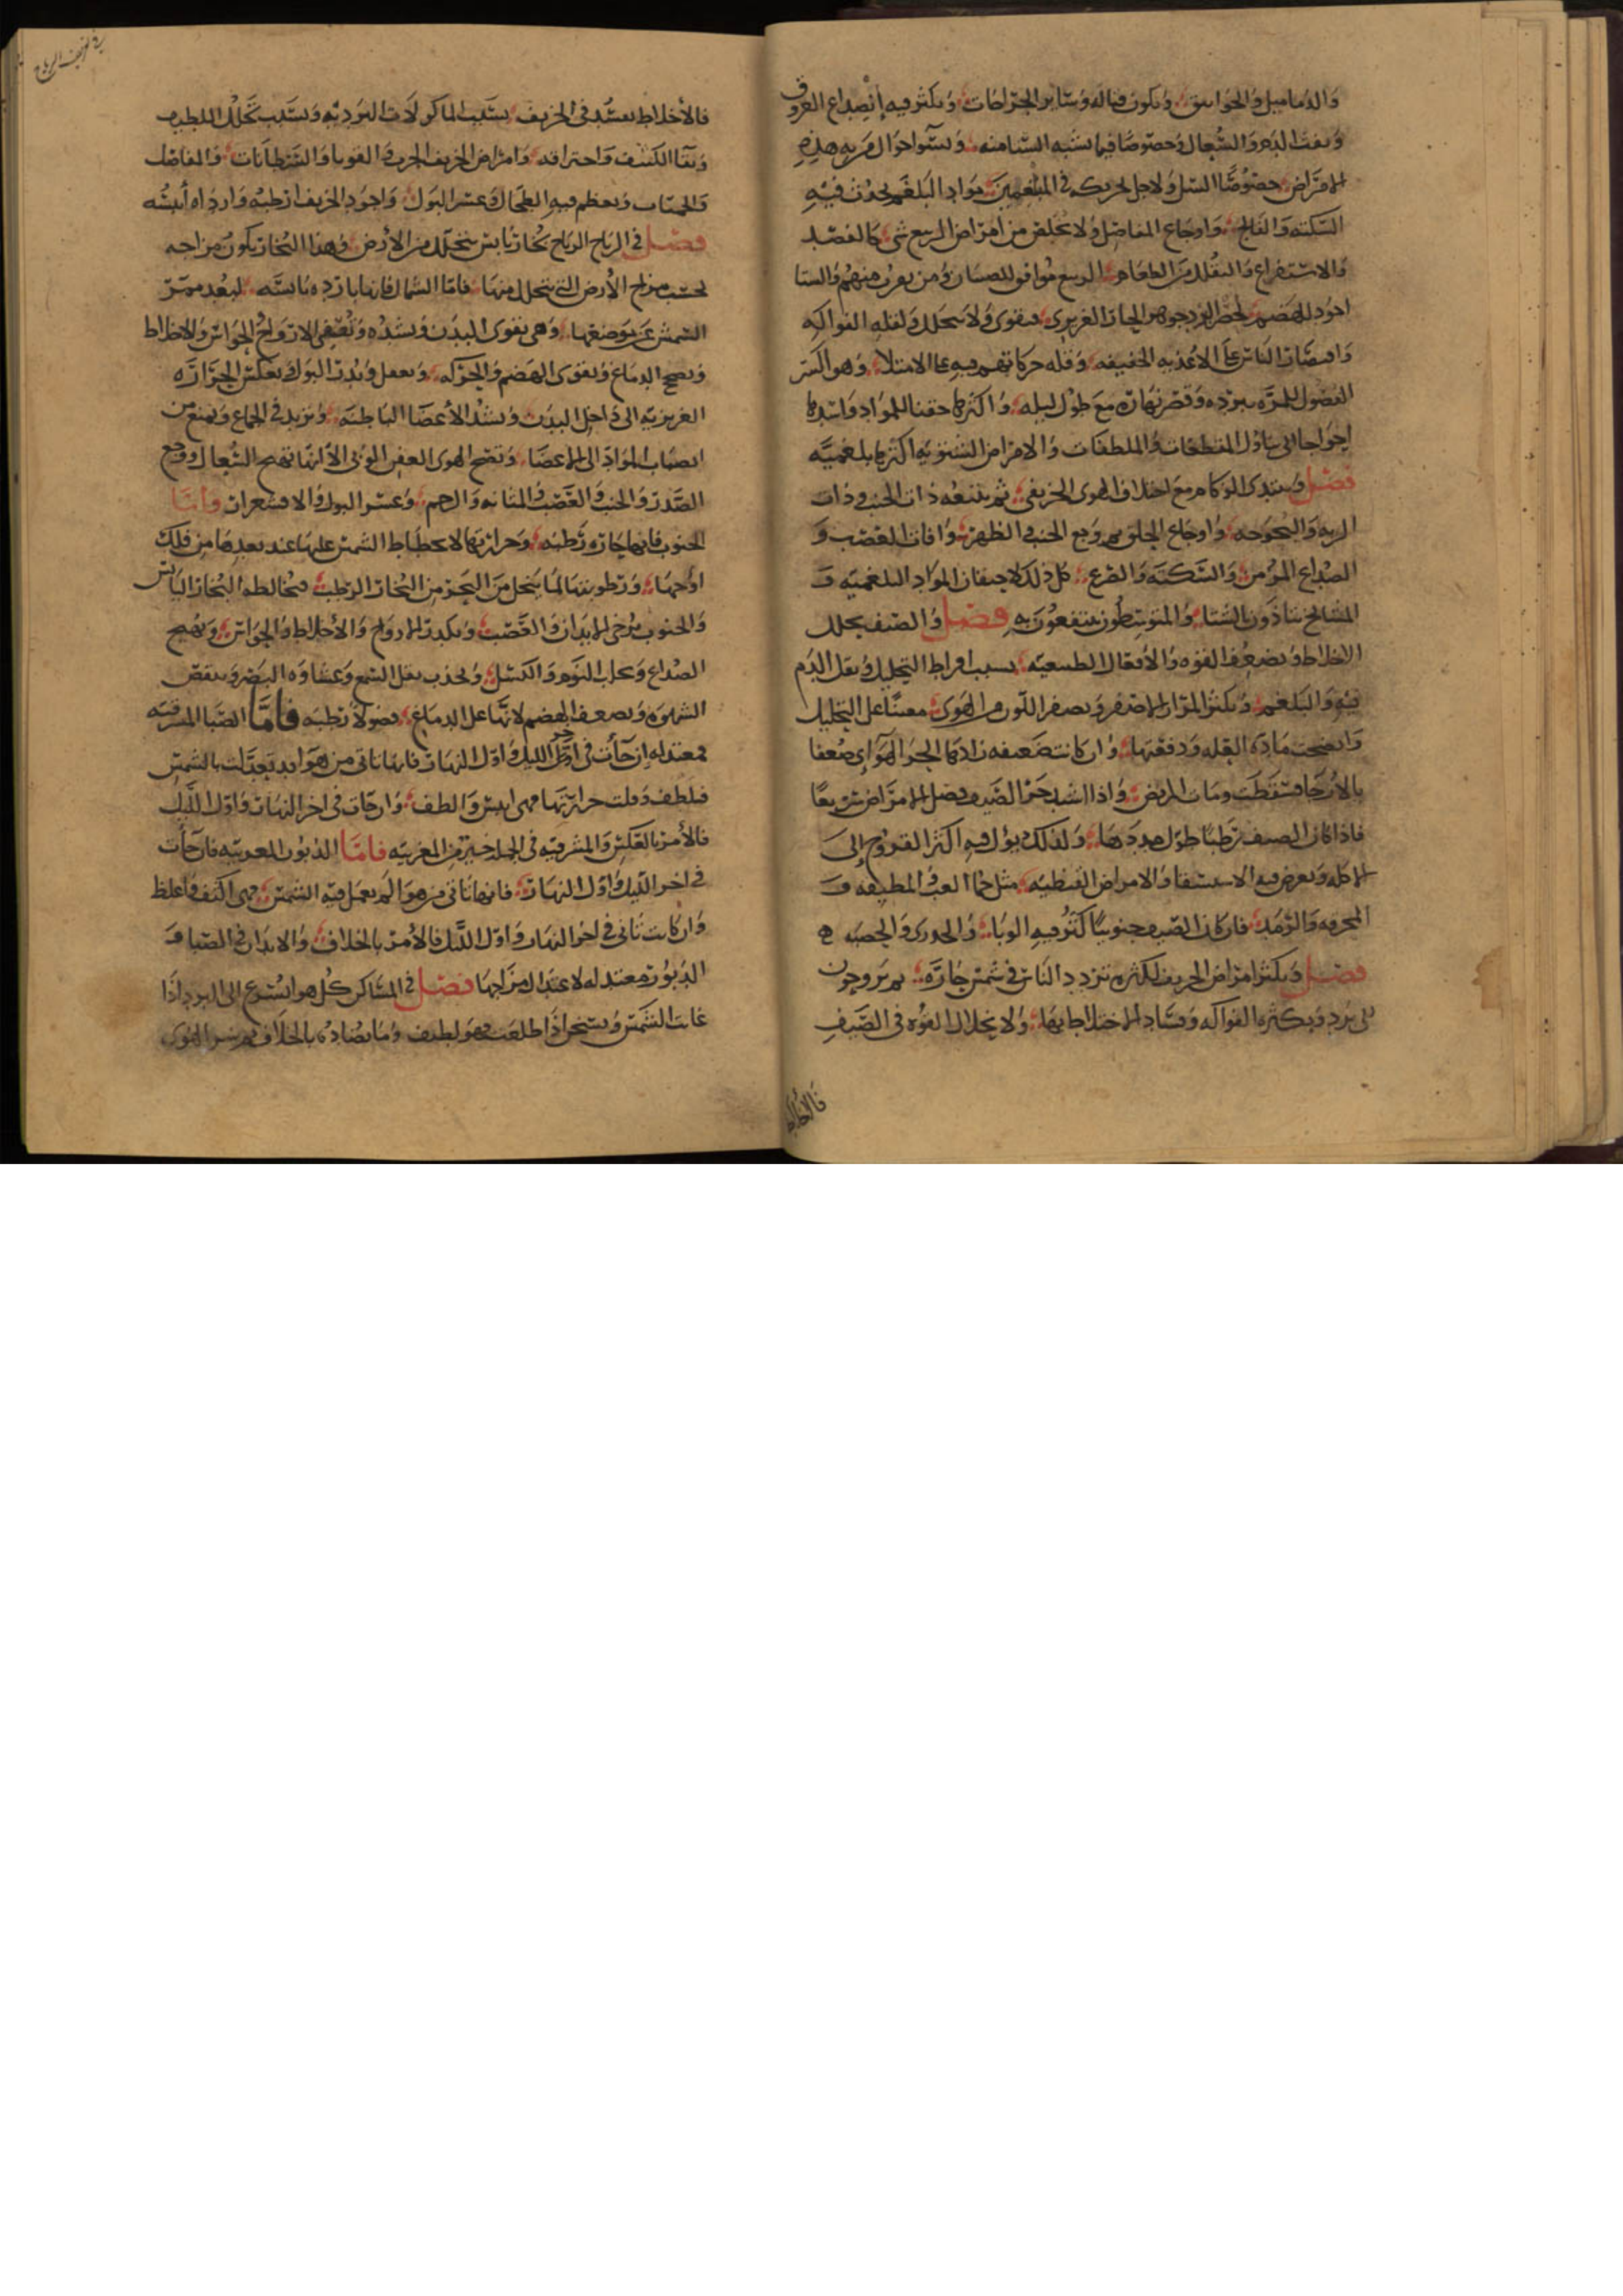 والدماميل والخوانيق ويكون قتاله وسائر الجراحات ويكثر فيه إنصداع العروق
ونفث الدم والسعال وخصوصا فيما يشبه الشتا منه وتسوا احوال من به هذه
الامراض خصوصا السل ولاجل تحريكه في المبلغمين مواد البلغم يحدث فيه
السكته والفالج واوجاع المفاصل ولا يخلص من امراض الربيع شي كالفصد
والاستفراغ والتقليل من الطعام الربيع موافق للصبيان ومن يقرب منهم والشتا
اجود للهضم لحصر البرد جوهر الحار الغريزي فيقوى ولا يتحلل ولقله الفواكه
واقتصار الناس على الاغذيه الخفيفه وقله حركاتهم فيه على الامتلا وهو اكسر
الفصول للمره ببرده وقصر نهاره مع طول ليله واكثرها حقنا للمواد واشدها
احواجا الى تناول المقطعات والملطفات والامراض الشتويه اكثرها بلغميه
فصل ويبتدى الزكام مع اختلاف الهوى الخريفي ثم يتبعه ذات الجنب وذات
الريه والبحوحه واوجاع الحلق ثم وجع الجنب والظهر وافات العصب و
الصداع المزمن والسكته والصرع كل ذلك لاحتقان المواد البلغميه و
المشايخ يتاذون بالشتا والمتوسطون ينتفعون به فصل والصيف يحلل
الاخلاط ويضعف القوه والافعال الطبيعيه بسبب افراط التحليل ويقل الدم
فيه والبلغم ويكثر المرار الاصفر ويصفر اللون من الهوى معينا على التحليل
وانضجت ماده العله ودفعتها وان كانت ضعيفه زادها الحر الهوائي ضعفا
بالارخا فسقطت ومات المريض واذا اشتد حر الصيف فصل الامراض سريعا
فاذا كان الصيف رطبا طول مددها ولذلك يؤل فيه اكثر القروح إلى
الاكله ويعرض فيه الاستسقا والامراض القيظيه مثل حمى الغب والمطبقه و
المحرقه والرمد فان كان الصيف جنوبيا كثر فيه الوبا والجدرى والحصبه
فصل ويكثر امراض الخريف لكثره تردد الناس في شمس حاره ثم يروحون
الى برد وبكثره الفواكه وفساد الاخلاط بها ولانحلال القوه في الصيف
فالاخلاط
فالأخلاط يفسد في الخريف بسبب الماكولات الرديه وبسبب تحلل اللطيف
وبقا الكثيف واحتراقه وامراض الخريف الجرب والقوبا والسرطانات والمفاصل
والحميات ويعظم فيه الطحال وعسر البول واجود الخريف ارطبه واردأه أيبسه
فصل في الرياح الرياح بخار يابس يتحلل من الأرض وهذا البخار يكون مزاجه
بحسب مزاج الأرض التي يتحلل منها فاما الشمال فانها بارده يابسه لبعد ممر
الشمس عن موضعها وهي تقوى البدن وتشده وتصفى الارواح والحواس والاخلاط
وتصح الدماغ وتقوى الهضم والحركه وتعقل وتدر البول وتعكس الحراره
الغريزيه الى داخل البدن وتشد الأعضا الباطنه وتزيد في الجماع وتمنع من
انصباب المواد الى الاعضا وتصح الهوى العفن الوبى الا انها تهيج السعال ووجع
الصدر والجنب والعصب والمثانه والرحم وعسر البول والاقشعرار وأما
الجنوب فانها حاره رطبه وحرارتها لانحطاط الشمس عليها عند بعدها من فلك
اوجها ورطوبتها لما يتحلل من البحر من البخار الرطب فيخالطه البخار اليابس
والجنوب يرخى الابدان والعصب ويكدر الارواح والأخلاط والحواس ويهيج
الصداع ويجلب النوم والكسل ويحدث ثقل السمع وغشاوه البصر وينقص
الشهوه ويضعف الهضم لانها على الدماغ فضولا رطبه فاما الصبا المشرقيه
فمعتدله إن جأت في اخر الليل واول النهار فانها تاتى من هوا قد تعدلت بالشمس
فلطف وقلت حرارتها فهي ايبس والطف وان جات في اخر النهار واول الليل
فالأمر بالعكس والمشرقيه في الجمله خير من المغربيه فاما الدبور المغربيه فان جأت
في اخر الليل واول النهار فانها تاتى من هوا لم يعمل فيه الشمس فهي اكثف واغلظ
وان كانت تاتى في اخر النهار واول الليل فالأمر بالخلاف والابدان في الصبا و
الدبور معتدله لاعتدال مزاجها فصل في المساكن كل هوا يسرع الى البرد اذا
غابت الشمس ويسخن اذا طلعت فهو لطيف وما يضاده بالخلاف ثم شر الهوى